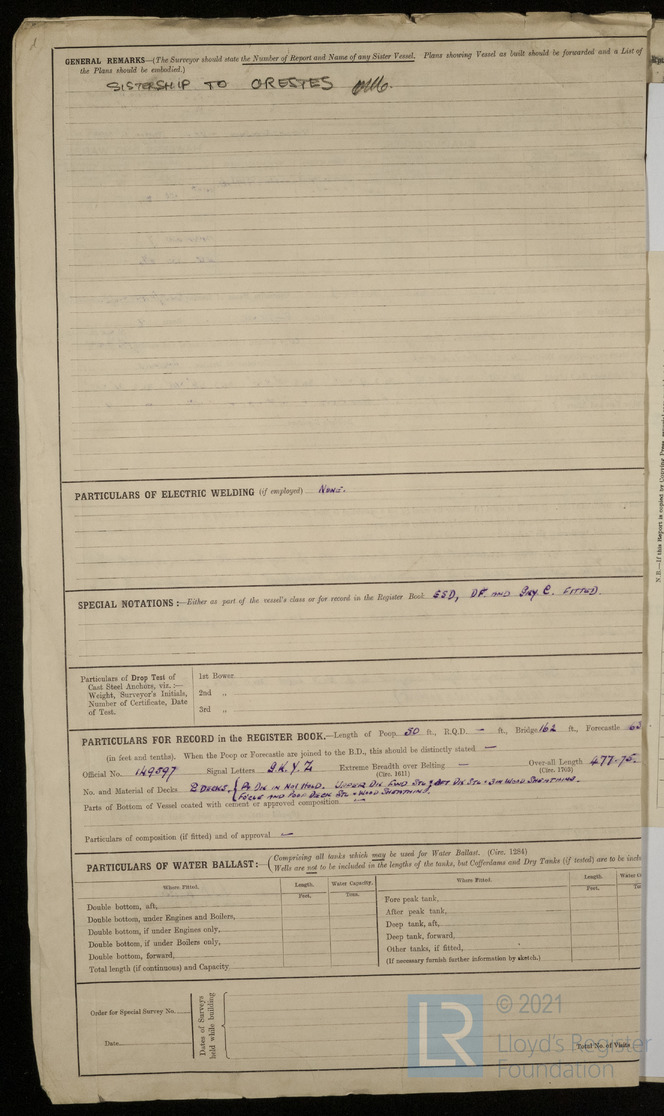 GENERAL REMARKS—(The Surveyor should state the Number of Report and Name of any Sister Vessel. Plans showing Vessel as built should be forwarded and a List of
the Plans should be embodied.)
SISTERSHIP TO ORESTES
PARTICULARS OF ELECTRIC WELDING (if employed) NONE.
SPECIAL NOTATIONS:—Either as part of the vessel's class or for record in the Register Book ESD, DF. AND GRY C. FITTED.
Particulars of Drop Test of
Cast Steel Anchors, viz.:—
Weight, Surveyor's Initials,
Number of Certificate, Date
of Test.
1st Bower
2nd „
3rd „
PARTICULARS FOR RECORD in the REGISTER BOOK.—Length of Poop 50 ft., R.Q.D. — ft., Bridge 162 ft., Forecastle 63
(in feet and tenths). When the Poop or Forecastle are joined to the B.D., this should be distinctly stated —
Official No. 149597 Signal Letters G.K.Y.Z Extreme Breadth over Belting — Over-all Length 477.75
(Circ. 1611) (Circ. 1703)
No. and Material of Decks 2 DECKS. UPPER DK STL & WOOD SHEATHING.
FOCSLE AND POOP DECK STL & WOOD SHEATHING
Parts of Bottom of Vessel coated with cement or approved composition —
Particulars of composition (if fitted) and of approval —
PARTICULARS OF WATER BALLAST:—
(Comprising all tanks which may be used for Water Ballast. (Circ. 1284)
Wells are not to be included in the lengths of the tanks, but Cofferdams and Dry Tanks (if tested) are to be inclu
Where Fitted. Length. Water Capacity. Where Fitted. Length. Water C
Feet. Tons. Feet. To
Double bottom, aft,
Double bottom, under Engines and Boilers,
Double bottom, if under Engines only,
Double bottom, if under Boilers only,
Double bottom, forward,
Total length (if continuous) and Capacity
Fore peak tank,
After peak tank,
Deep tank, aft,
Deep tank, forward,
Other tanks, if fitted,
(If necessary furnish further information by sketch.)
Order for Special Survey No.
Date
Dates of Surveys
held while building
Total No. of Visits
LR
© 2021
Lloyd's Register
Foundation
N.B.—If this Report is copied by Copying Press